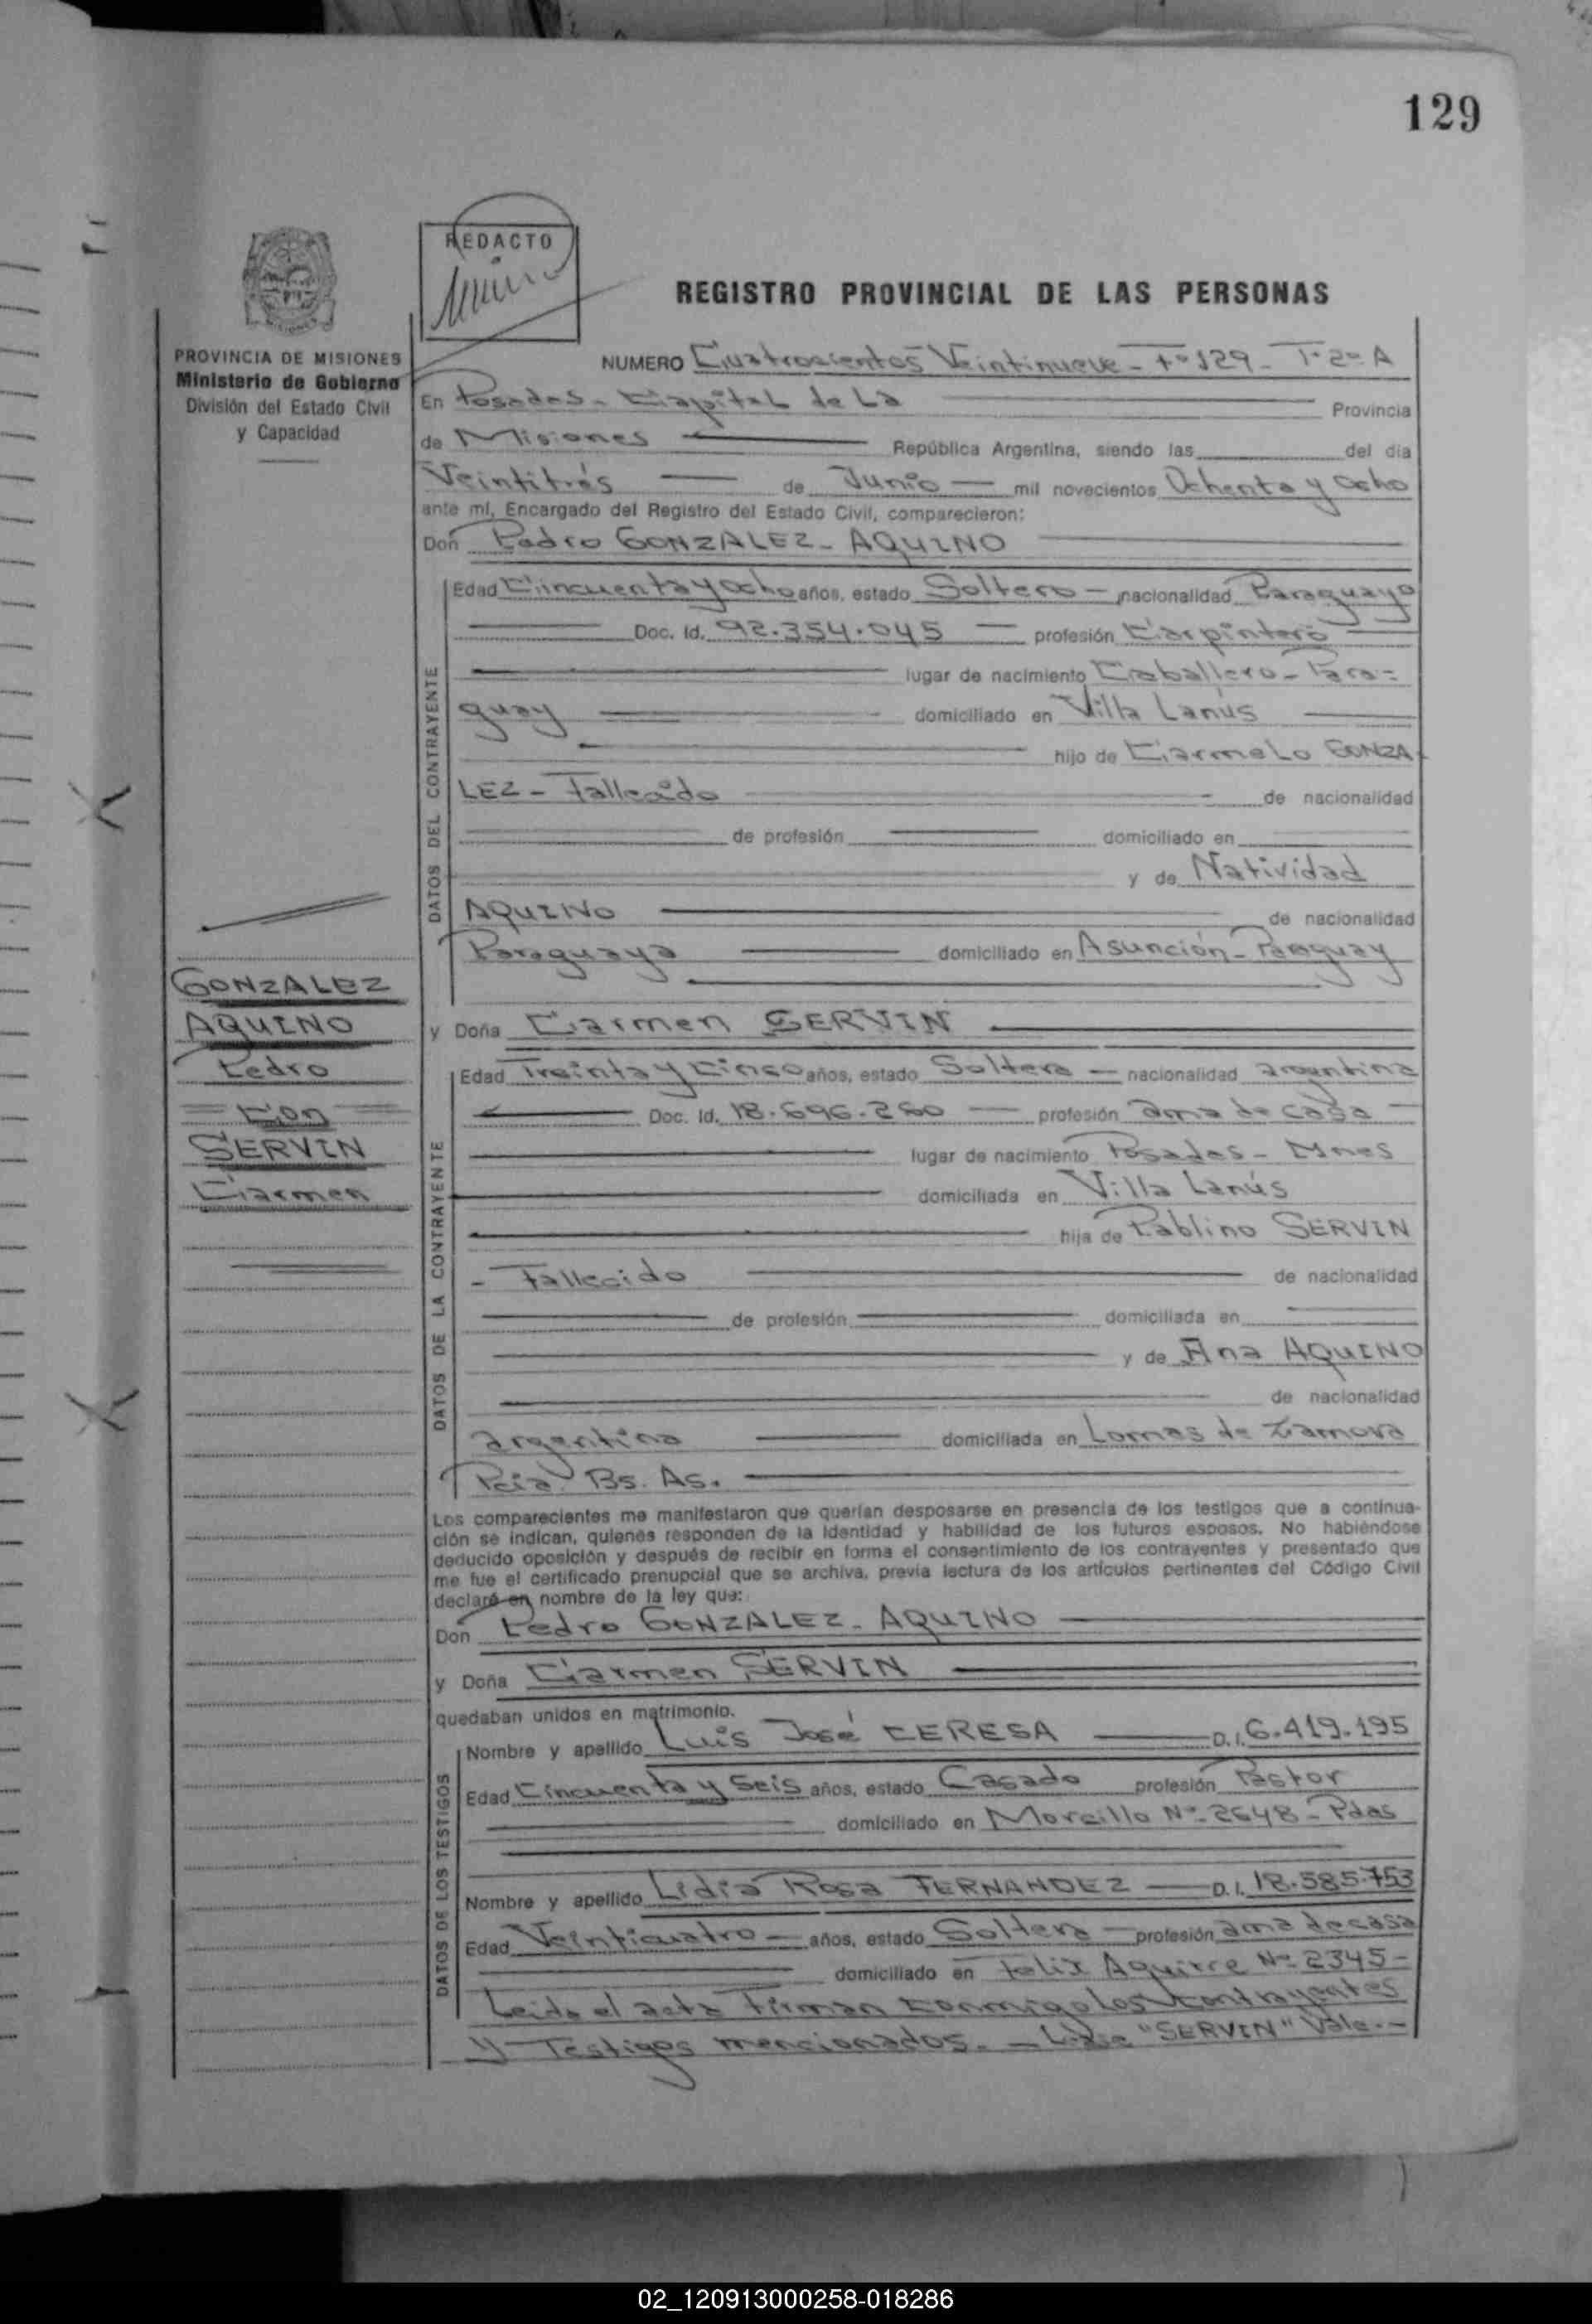 129
REDACTO
REGISTRO PROVINCIAL DE LAS PERSONAS
PROVINCIA DE MISIONES
Ministerio de Gobierno
División del Estado Civil
y Capacidad
NUMERO Cuatrocientos Veintinueve - Fº 129 - Tº 2º A
En Posadas - Capital de La Provincia
de Misiones República Argentina, siendo las del día
Veintitrés de Junio mil novecientos Ochenta y Ocho
ante mí, Encargado del Registro del Estado Civil, comparecieron:
Don Pedro GONZALEZ - AQUINO
DATOS DEL CONTRAYENTE
Edad Cincuenta y ocho años, estado Soltero - nacionalidad Paraguayo
Doc. Id. 92.354.045 - profesión Carpintero
lugar de nacimiento Caballero - Para=
guay domiciliado en Villa Lanús
hijo de Carmelo GONZA-
LEZ - Fallecido de nacionalidad
de profesión domiciliado en
y de Natividad
AQUINO de nacionalidad
Paraguaya domiciliado en Asunción - Paraguay
GONZALEZ
AQUINO
Pedro
= Con =
SERVIN
Carmen
y Doña Carmen SERVIN
DATOS DE LA CONTRAYENTE
Edad Treinta y Cinco años, estado Soltera - nacionalidad argentina
Doc. Id. 18.696.280 - profesión ama de casa -
lugar de nacimiento Posadas - Mnes
domiciliada en Villa Lanús
hija de Pablino SERVIN
- Fallecido de nacionalidad
de profesión domiciliada en
y de Ana AQUINO
de nacionalidad
argentina domiciliada en Lomas de Zamora
Pcia Bs. As.
Los comparecientes me manifestaron que querían desposarse en presencia de los testigos que a continua-
ción se indican, quienes responden de la identidad y habilidad de los futuros esposos. No habiéndose
deducido oposición y después de recibir en forma el consentimiento de los contrayentes y presentado que
me fue el certificado prenupcial que se archiva, previa lectura de los artículos pertinentes del Código Civil
declaré en nombre de la ley que:
Don Pedro GONZALEZ - AQUINO
y Doña Carmen SERVIN
quedaban unidos en matrimonio.
DATOS DE LOS TESTIGOS
Nombre y apellido Luis José CERESA D.I. 6.419.195
Edad Cincuenta y Seis años, estado Casado profesión Pastor
domiciliado en Morcillo Nº 2648 - Pdas
Nombre y apellido Lidia Rosa FERNANDEZ D.I. 18.585.753
Edad Veinticuatro - años, estado Soltera - profesión ama de casa
domiciliado en Felix Aguirre Nº 2345 -
Leida el acta Firman conmigo los contrayentes
y Testigos mencionados. - Léase "SERVIN" Vale.-
02_120913000258-018286